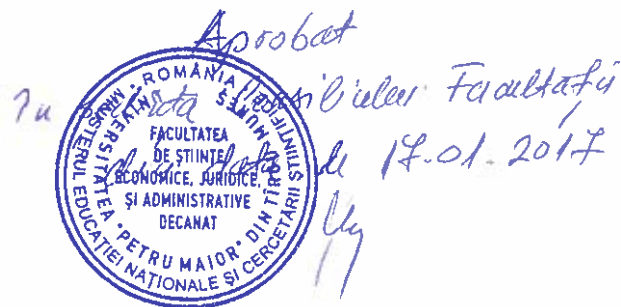 Aprobat
În Ședința Consiliului Facultății
din data de 17.01.2017
ROMÂNIA
MINISTERUL EDUCAȚIEI NAȚIONALE ȘI CERCETĂRII ȘTIINȚIFICE
UNIVERSITATEA "PETRU MAIOR" DIN TÎRGU MUREȘ
FACULTATEA
DE ȘTIINȚE
ECONOMICE, JURIDICE,
ȘI ADMINISTRATIVE
DECANAT